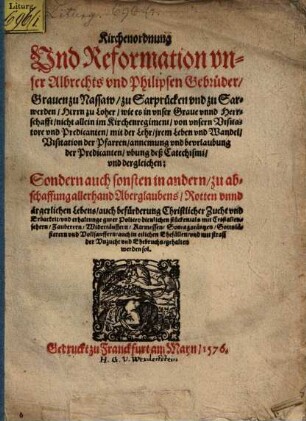 Liturg.
696/2
Liturg. 696 2.
Kirchenordnung
Vnd Reformation vn-
ser Albrechts vnd Philipsen Gebrüder/
Grauen zu Nassaw/ zu Sarprücken vnd zu Sar-
werden/ Herrn zu Loher/ wie es in vnser Graue vnnd Herr-
schafft/ nicht allein im Kirchenregiment/ von vnsern Visita-
torn vnd Predicanten/ mit der Lehr/ jrem Leben vnd Wandel/
Visitation der Pfarren/ annemung vnd bevrlaubung
der Predicanten/ vbung deß Catechismi/
vnd dergleichen;
Sondern auch sonsten in andern/ zu ab-
schaffung allerhand Aberglaubens/ Rotten vnnd
ärgerlichen Lebens/ auch befürderung Christlicher Zucht vnd
Erbarkeit/ vnd erhaltunge guter Policey dienlichen Stücken/ als mit Cristallen-
sehern/ Zauberern/ Widertäuffern/ Kirmessen/ Sontagstäntzen/
vnd Vollsauffern/ auch in etlichen Ehfällen/ vnd mit straff
der Vnzucht vnd Ehebruchs/ gehalten
werden sol.
Gedruckt zu Franckfurt am Mayn/ 1576.